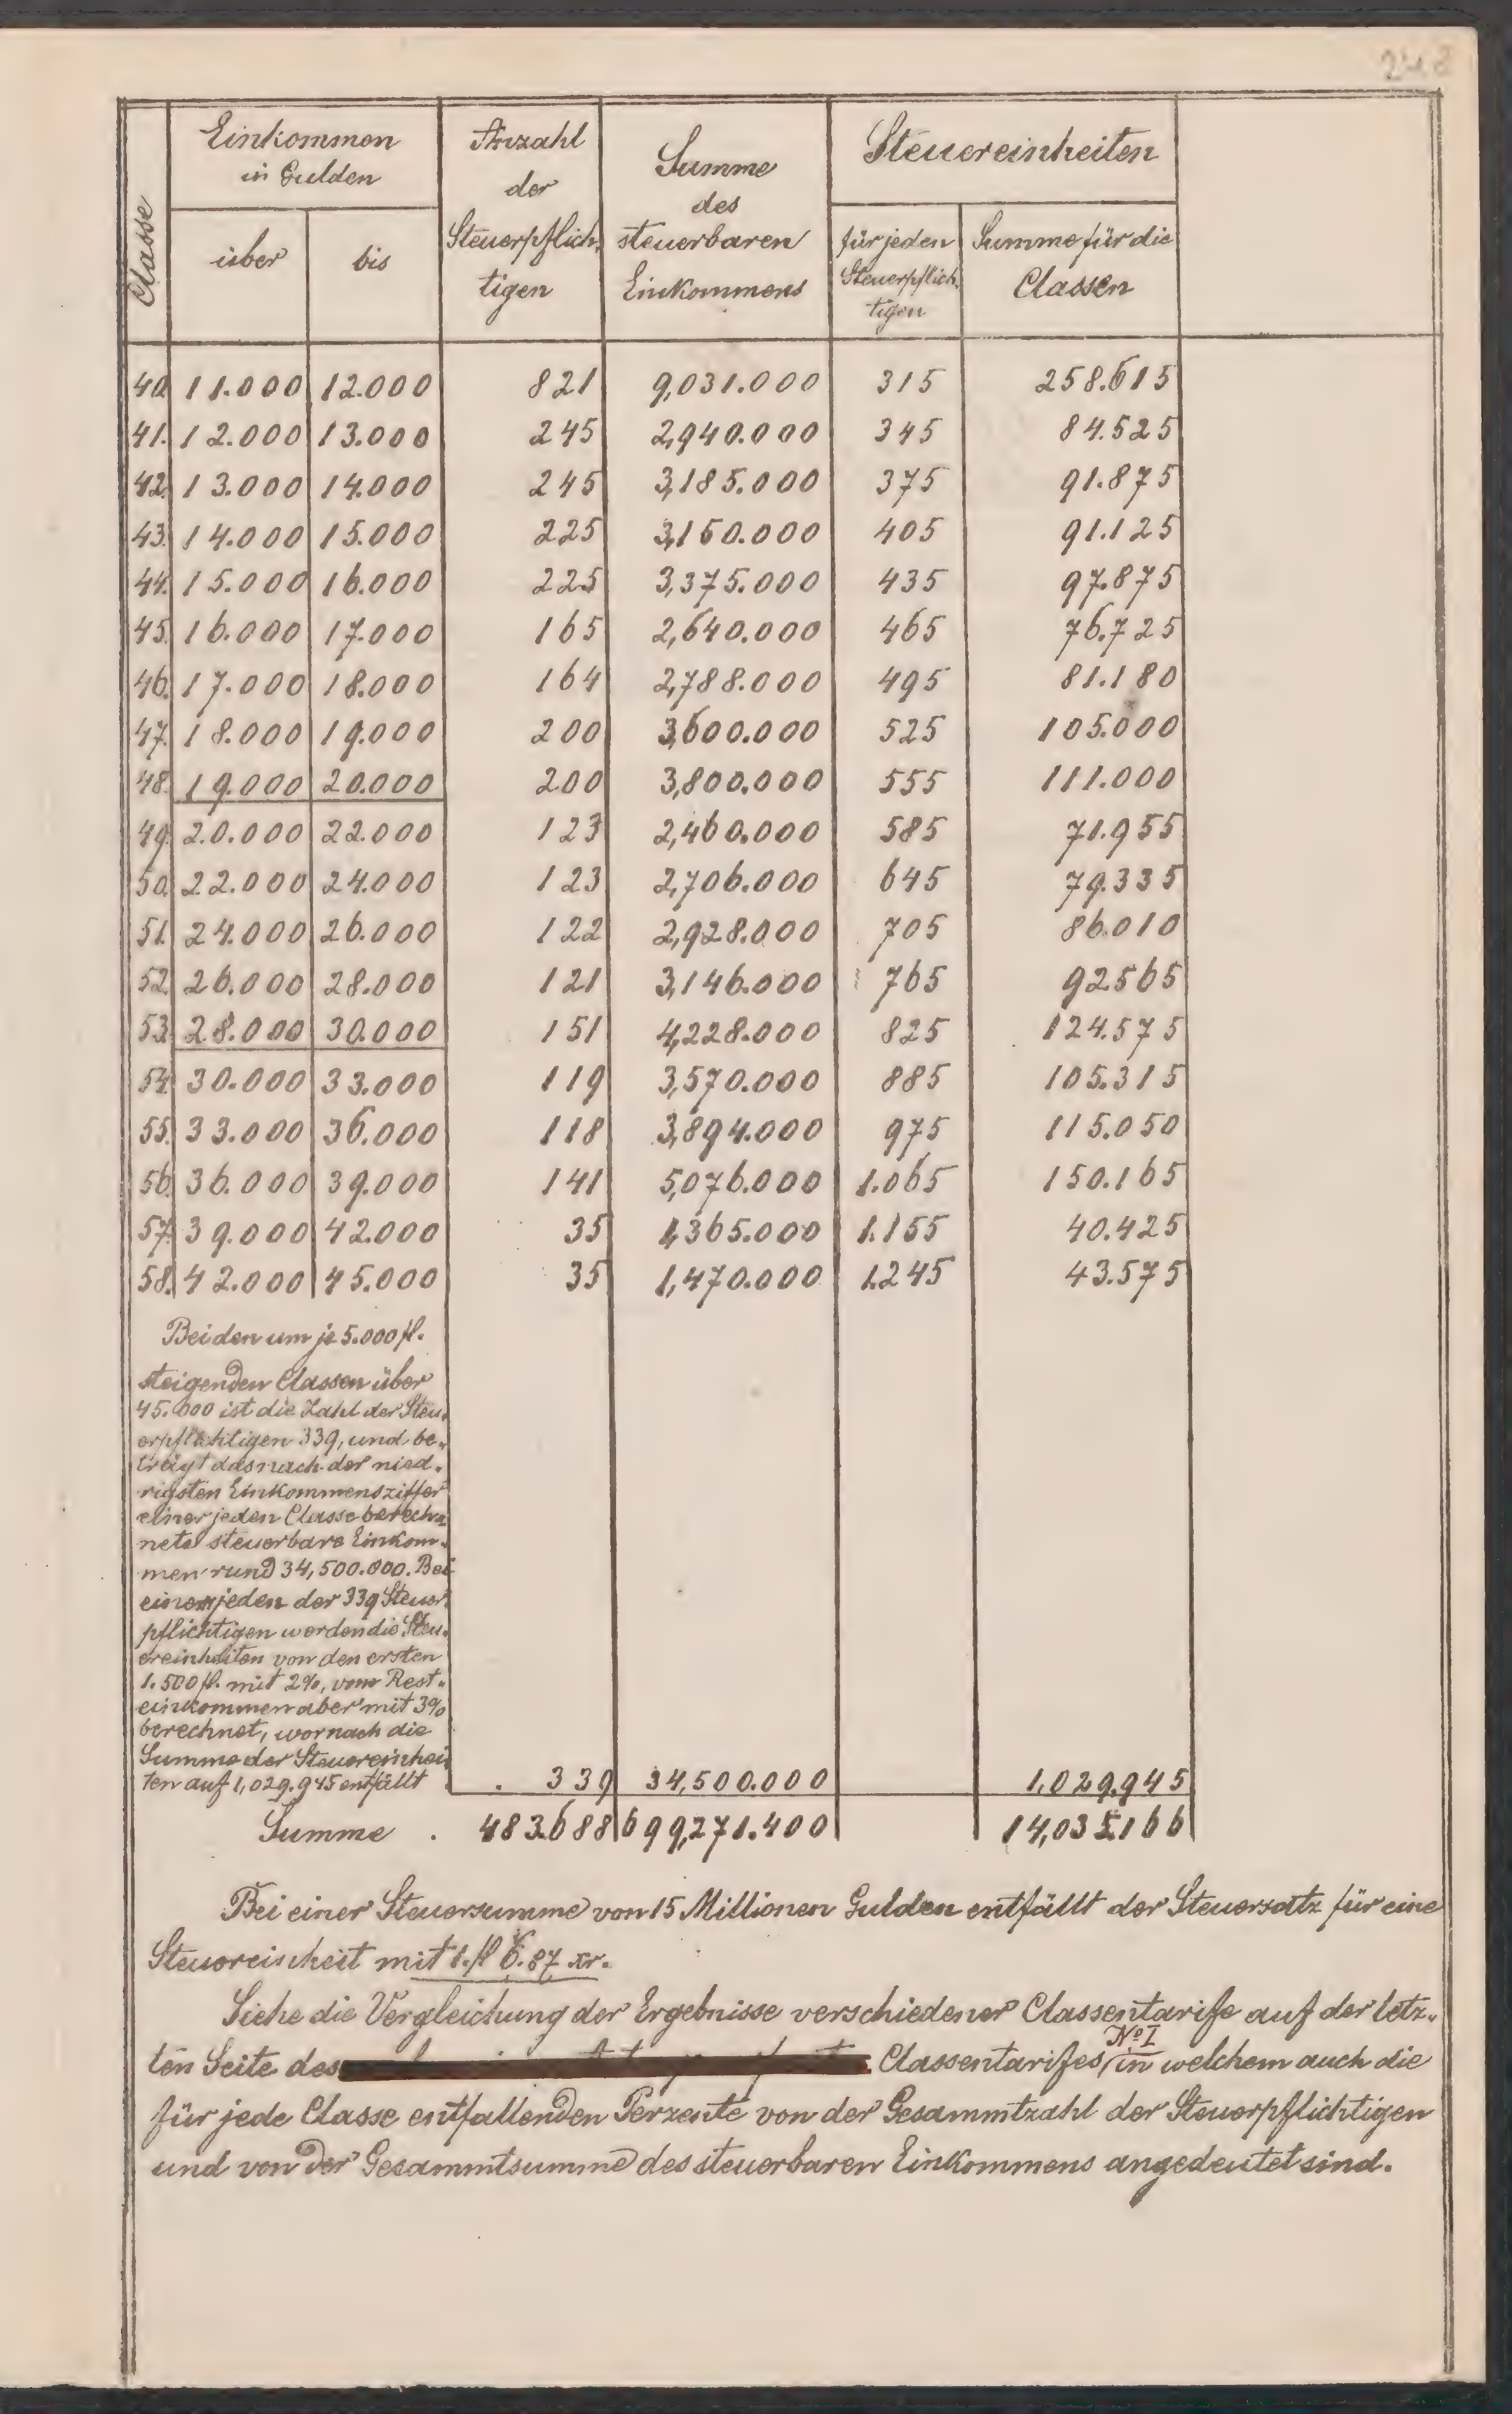 248
Classe
Einkommen
in Gulden
über
bis
Anzahl
der
Steuerpflich-
tigen
Summe
des
steuerbaren
Einkommens
Steuereinheiten
für jeden
Steuerpflich-
tigen
Summe für die
Classen
40. 11.000 12.000 821 9,031.000 315 258.615
41. 12.000 13.000 245 2,940.000 345 84.525
42. 13.000 14.000 245 3,185.000 375 91.875
43. 14.000 15.000 225 3,150.000 405 91.125
44. 15.000 16.000 225 3,375.000 435 97.875
45. 16.000 17.000 165 2,640.000 465 76.725
46. 17.000 18.000 164 2,788.000 495 81.180
47. 18.000 19.000 200 3,600.000 525 105.000
48. 19.000 20.000 200 3,800.000 555 111.000
49. 20.000 22.000 123 2,460.000 585 71.955
50. 22.000 24.000 123 2,706.000 645 79.335
51. 24.000 26.000 122 2,928.000 705 86.010
52. 26.000 28.000 121 3,146.000 765 92565
53. 28.000 30.000 151 4,228.000 825 124.575
54. 30.000 33.000 119 3,570.000 885 105.315
55. 33.000 36.000 118 3,894.000 975 115.050
56. 36.000 39.000 141 5,076.000 1.065 150.165
57. 39.000 42.000 35 1,365.000 1.155 40.425
58. 42.000 45.000 35 1,470.000 1.245 43.575
Bei den um je 5.000 fl.
steigenden Classen über
45.000 ist die Zahl der Steu-
erpflichtigen 339, und be-
trägt das nach der nied-
rigsten Einkommensziffer
einer jeden Classe berech-
nete steuerbare Einkom-
men rund 34,500.000. Bei
einem jeden der 339 Steuer-
pflichtigen werden die Steu-
ereinheiten von den ersten
1.500 fl. mit 2%, vom Rest-
einkommen aber mit 3%
berechnet, wornach die
Summe der Steuereinhei-
ten auf 1,029.945 entfällt . 339 34,500.000 1,029.945
Summe . 483.688 699,271.400 14,035.166
Bei einer Steuersumme von 15 Millionen Gulden entfällt der Steuersatz für eine
Steuereinheit mit 1. fl 6.87 xr.
Siehe die Vergleichung der Ergebnisse verschiedener Classentarife auf der letz-
ten Seite des Classentarifes No I in welchem auch die
für jede Classe entfallenden Perzente von der Gesammtzahl der Steuerpflichtigen
und von der Gesammtsumme des steuerbaren Einkommens angedeutet sind.